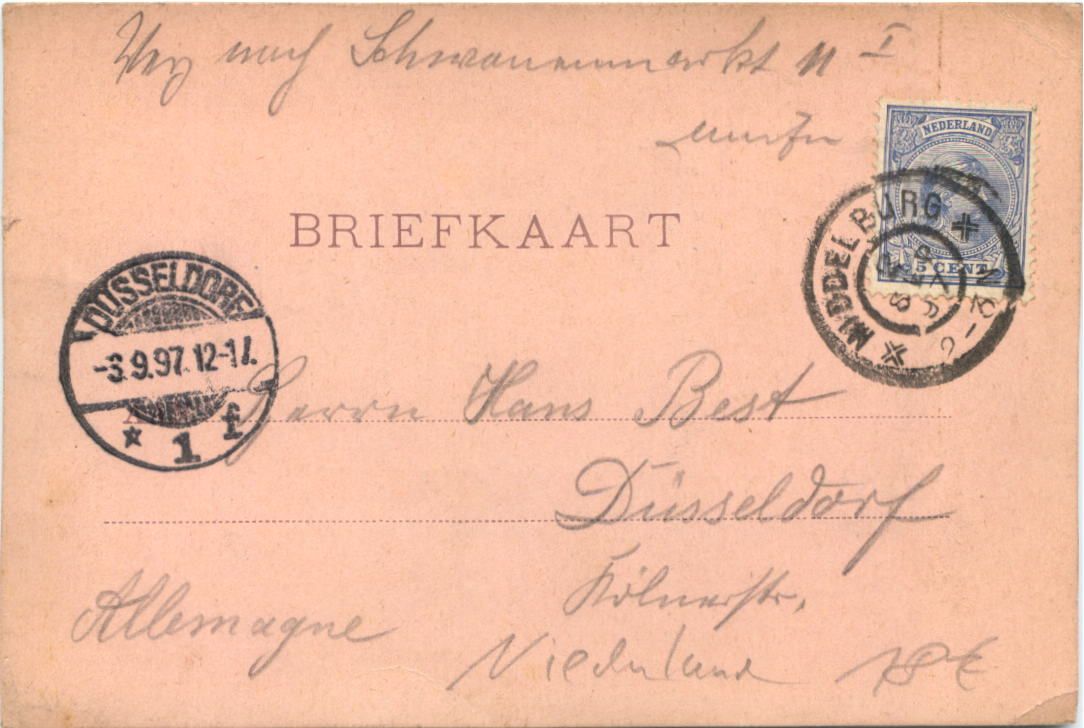 Verz nach Schwanenmarkt 11 I
NEDERLAND
5 CENT
MIDDELBURG
BRIEFKAART
DÜSSELDORF
-3.9.97.12-1N.
* 1 f
Herrn Hans Best
Düsseldorf
Kölnerstr.
Allemagne
Niederland